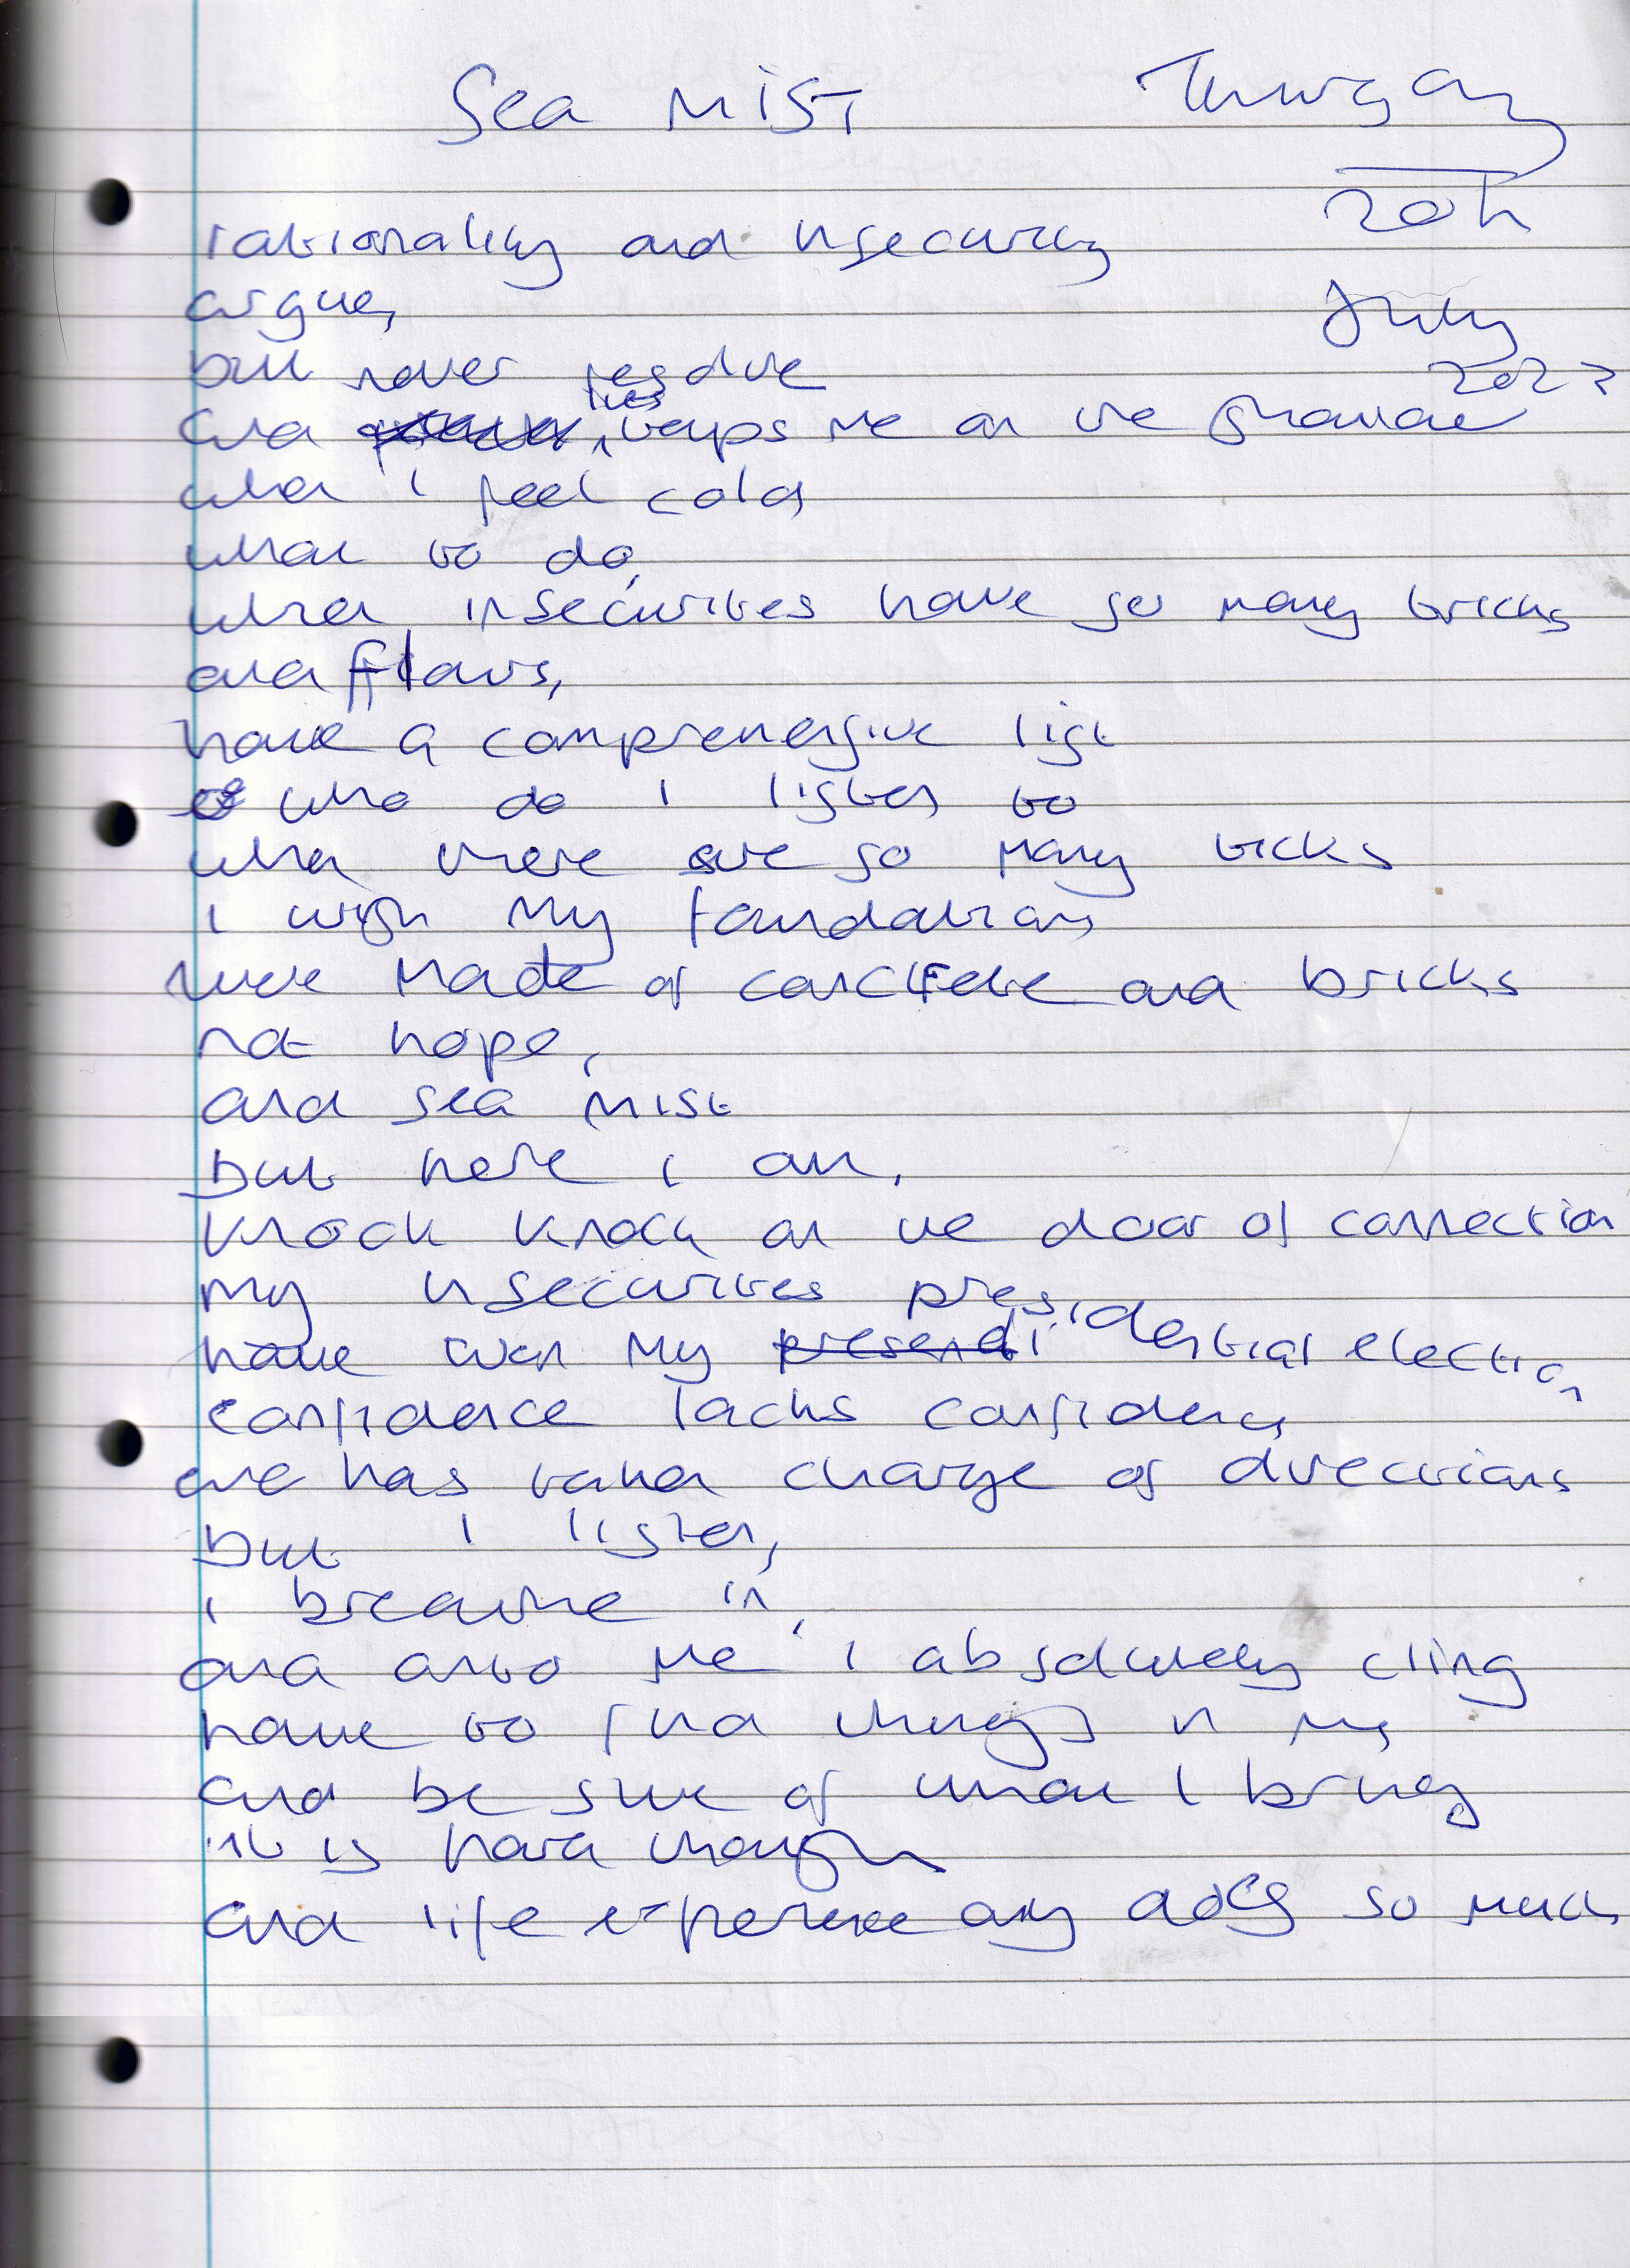 Sea Mist
Thursday
20th
July
2023
rationality and insecurity
argue,
but never resolve
and lies, taps me on the shoulder
when i feel cold
what to do,
when insecurities have so many bricks
and flaws,
have a comprehensive list
of who do i listen to
when there are so many ticks
i wish my foundations
were made of concrete and bricks
not hope,
and sea mist
but here i am,
knock knock on the door of connection
my insecurities
have won my presidential election
confidence lacks confidence
and has taken charge of directions
but i listen,
i breathe in,
and onto me i absolutely cling
have to find things in me
and be sure of what i bring
it is hard though
and life experience only adds so much